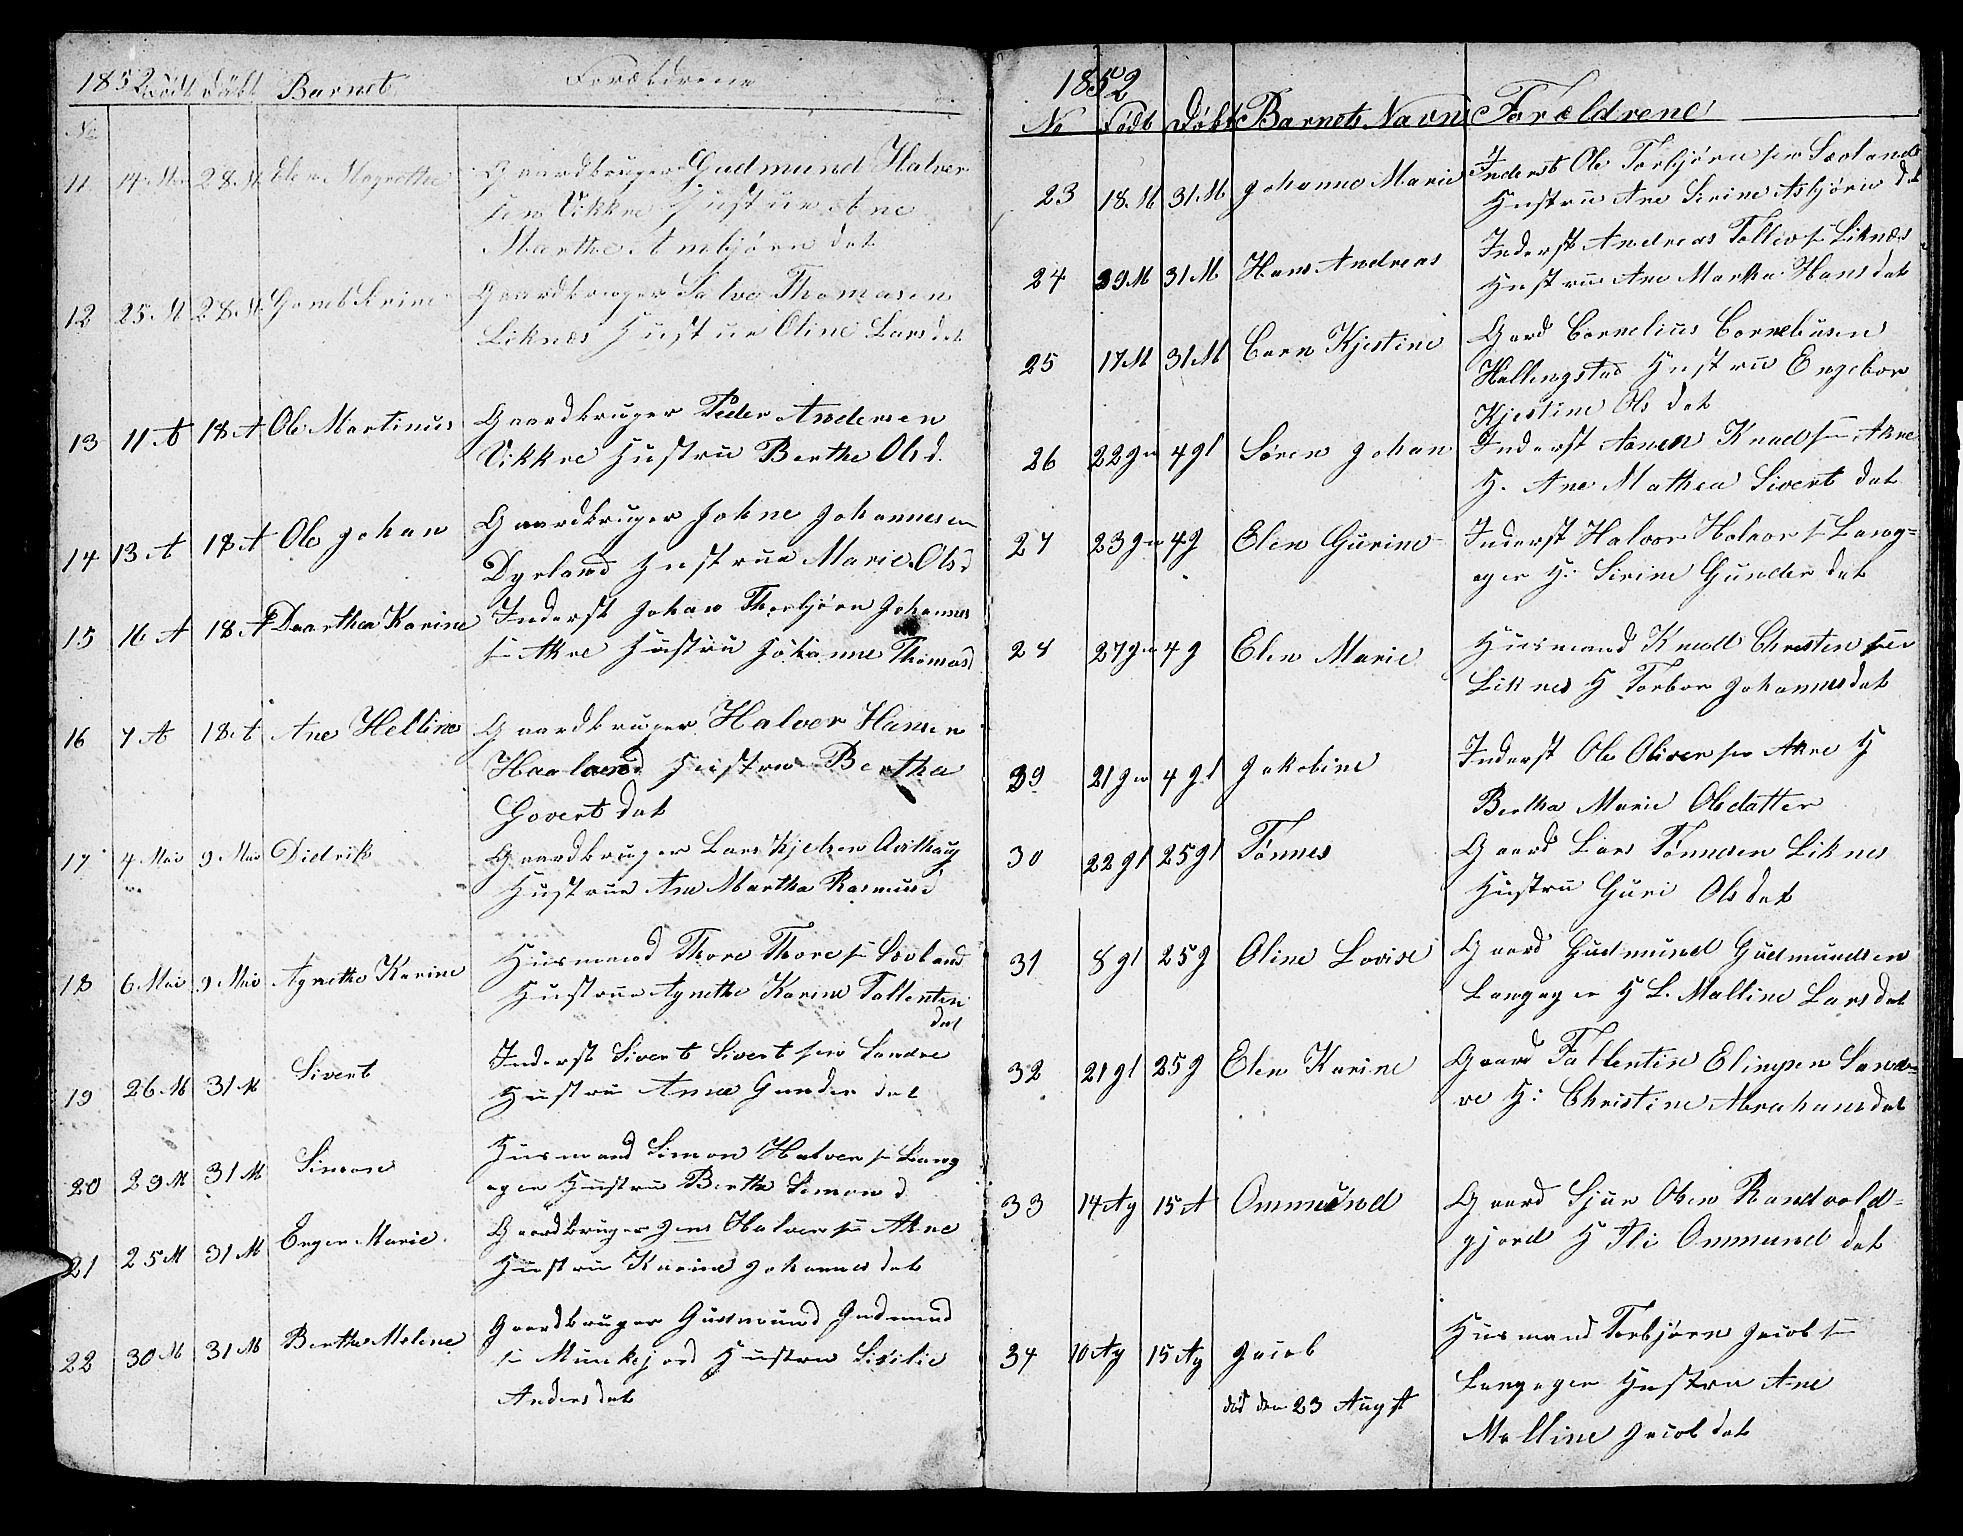 1852 Født Døbt Barnet Forældrene
No
11 14 M 28 M Elen Magrethe Gaardbruger Gudmund Halver
sen Vikkre Hustrue Ane
Marthe Arnbjørn dat
12 25 M 28 M Serine Gaardbruger Salve Thomasen
Liknes Hustrue Oline Lars dat
13 11 A 18 A Ole Martinus Gaardbruger Peder Andersen
Vikkre Hustru Berthe Ols d.
14 13 A 18 A Ole Johan Gaardbruger Johne Johannesen
Dyrland Hustrue Marie Ols d
15 16 A 18 A Daarthea Karine Inderst Johan Thorbjørn Johannes
sn Akre Hustru Johanne Thomas d
16 7 A 18 A Ane Helline Gaardbruger Halver Hansen
Haaland Hustru Bertha
Govert dat
17 4 Mai 9 Mai Didrik Gaardbruger Lars Kjelsen
Hustrue Ane Martha Rasmus d
18 6 Mai 9 Mai Agnethe Karine Husmand Thore Thore sn Sæoland
Hustrue Agnethe Karine Fallentin
dat
19 26 M 31 M Sivert Inderst Sivert Sivert sen Sandve
Hustru Anne Gunder dat
20 29 M 31 M Simon Husmand Simon Halver sn Lang
ager Hustru Berthe Simon d
21 25 M 31 M Enger Marie Gaardbruger Jens Halver sn Akre
Hustru Karine Johannes dat
22 30 M 31 M Berthe Malene Gaardbruger Gudmund Gudmund
sn Munkejord Hustru Sisilie
Anders dat
1852
No Født Døbt Barnets Navn Forældrene
23 18 M 31 M Johanne Marie Inderst Ole Torbjørn sen Sæoland
Hustru Ane Sirine Asbjørn dat
24 29 M 31 M Hans Andreas Inderst Andreas Tollev sn Liknes
Hustru Ane Martha Hans dat
25 17 M 31 M Caren Kjestine Gard Cornelius Corneliusen
Hellingstad Hustru Engebor
Kjestine Ols dat
26 22 Jn 4 Jl Søren Johan Inderst Aanen Knud sn Akre
H. Ane Mathea Sivert dat
27 23 Jn 4 J Elen Gurine Inderst Halvor Halvor sn Lang-
ager H: Sirine Gunder dat
28 27 Jn 4 J Elen Marie Husmand Knudt Christen sen
Liknes H Torbor Johannes dat
29 21 Jn 4 Jl Jakobine Inderst Ole Oliver sen Akre H
Bertha Marie Olsdatter
30 22 Jl 25 Jl Tønnes Gaard Lars Tønnesen Liknes
Hustru Guri Ols dat
31 8 Jl 25 J Oline Lovise Gaard Gudmund Gudmundsen
Langager H L. Malline Lars dat
32 21 Jl 25 J Elen Karine Gaard Fallentin Elingsen Sand-
ve H: Christine Abrahams dat
33 14 Ag 15 A Ommund Gaard Sjur Olsen Randvold-
gjord H Ommund dat
34 10 Ag 15 Ag Jacob Husmand Torbjørn Jacob sn
død den 23 August Langager Hustru Ane
Malline Jacob dat